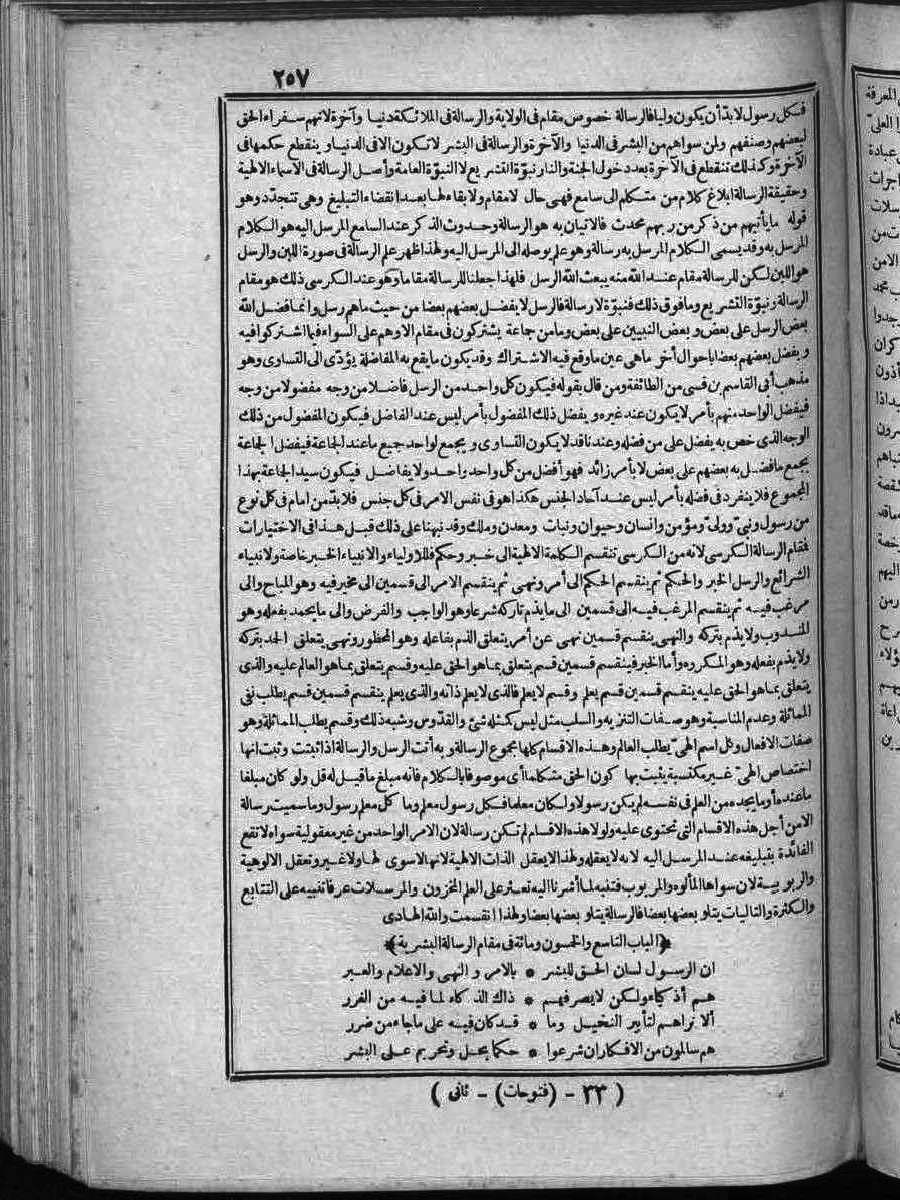 ٢٥٧
فكل رسول لابد أن يكون وليا فالرسالة خصوص مقام فى الولاية والرسالة فى الملائكة دنيا وآخرة لانهم سفراء الحق
لبعضهم وصنفهم ولمن سواهم من البشر فى الدنيا والآخرة والرسالة فى البشر لاتكون الا فى الدنيا وينقطع حكمها فى
الآخرة وكذلك تنقطع فى الآخرة بعد دخول الجنة والنار نبوّة التشريع لا النبوّة العامة وأصل الرسالة فى الاسماء الالهية
وحقيقة الرسالة ابلاغ كلام من متكلم الى سامع فهى حال لامقام ولابقاء لها بعد انقضاء التبليغ وهى تتجدّد وهو
قوله مايأتيهم من ذكر من ربهم محدث فالاتيان به هو الرسالة وحدوث الذكر عند السامع المرسل اليه هو الكلام
المرسل به وقد يسمى الكلام المرسل به رسالة وهو علم يوصله الى المرسل اليه ولهذا ظهر علم الرسالة فى صورة اللبن والرسل
هو اللبن لكن للرسالة مقام عند الله منه يبعث الله الرسل فلهذا جعلنا للرسالة مقاما وهو عند الكرسى ذلك هو مقام
الرسالة ونبوّة التشريع ومافوق ذلك فنبوّة لارسالة فالرسل لايفضل بعضهم بعضا من حيث ماهم رسل وانما فضل الله
بعض الرسل على بعض وبعض النبيين على بعض ومامن جماعة يشتركون فى مقام الا وهم على السواء فيما اشتركوا فيه
ويفضل بعضهم بعضا باحوال أخر ماهى عين ماوقع فيه الاشتراك وقد يكون مايقع به المفاضلة يؤدّى الى التساوى وهو
مذهب أبى القاسم بن قسى من الطائفة ومن قال بقوله فيكون كل واحد من الرسل فاضلا من وجه مفضولا من وجه
فيفضل الواحد منهم بأمر لايكون عند غيره ويفضل ذلك المفضول بأمر ليس عند الفاضل فيكون المفضول من ذلك
الوجه الذى خص به يفضل على من فضله وعندنا قد لايكون التساوى ويجمع لواحد جميع ماعند الجماعة فيفضل الجماعة
بجمع مافضل به بعضهم على بعض لا بأمر زائد فهو أفضل من كل واحد واحد ولايفاضل فيكون سيد الجماعة بهذا
المجموع فلا ينفرد فى فضله بأمر ليس عند آحاد الجنس هكذا هو فى نفس الامر فى كل جنس فلابدّ من امام فى كل نوع
من رسول ونبىّ وولىّ ومؤمن وانسان وحيوان ونبات ومعدن وملك وقد نبهنا على ذلك قبل هذا فى الاختيارات
فمقام الرسالة الكرسى لانه من الكرسى تنقسم الكلمة الالهية الى خبر وحكم فللاولياء والانبياء الخبر خاصة ولانبياء
الشرائع والرسل الخبر والحكم ثم ينقسم الحكم الى أمر ونهى ثم ينقسم الامر الى قسمين الى مخير فيه وهو المباح والى
مرغب فيه ثم ينقسم المرغب فيه الى قسمين الى مايذم تاركه شرعا وهو الواجب والفرض والى مايحمد بفعله وهو
المندوب ولايذم بتركه والنهى ينقسم قسمين نهى عن أمر يتعلق الذم بفاعله وهو المحظور ونهى يتعلق الحد بتركه
ولايذم بفعله وهو المكروه وأما الخبر فينقسم قسمين قسم يتعلق بما هو الحق عليه وقسم يتعلق بما هو العالم عليه والذى
يتعلق بما هو الحق عليه ينقسم قسمين قسم يعلم وقسم لايعلم فالذى لايعلم ذاته والذى يعلم ينقسم قسمين قسم يطلب نفى
المماثلة وعدم المناسبة وهو صفات التنزيه والسلب مثل ليس كمثله شئ والقدّوس وشبه ذلك وقسم يطلب المماثلة وهو
صفات الافعال وكل اسم الهىّ يطلب العالم وهذه الاقسام كلها مجموع الرسالة وبه أتت الرسل والرسالة اذا ثبتت وثبت انها
اختصاص الهىّ غير مكتسبة يثبت بها كون الحق متكلما أى موصوفا بالكلام فانه مبلغ ماقيل له قل ولو كان مبلغا
ماعنده أو مايجده من العلم فى نفسه لم يكن رسولا ولكان معلما فكل رسول معلم وما كل معلم رسول وماسميت رسالة
الا من أجل هذه الاقسام التى تحتوى عليه ولولا هذه الاقسام لم تكن رسالة لان الامر الواحد من غير معقولية سواه لاتقع
الفائدة بتبليغه عند المرسل اليه لانه لايعقله ولهذا لايعقل الذات الالهية لانها لاسوى لها ولاغير وتعقل الالوهية
والربوبية لان سواها المألوه والمربوب فتنبه لما أشرنا اليه تعثر على العلم المخزون والمرسلات عرفا تنبيه على التتابع
والكثرة والتاليات يتلو بعضها بعضا فالرسالة يتلو بعضها بعضا ولهذا انقسمت والله الهادى
﴿الباب التاسع والخمسون ومائة فى مقام الرسالة البشرية﴾
ان الرسول لسان الحق للبشر * بالامر والنهى والاعلام والعبر
هم أذكياء ولكن لايصرفهم * ذاك الذكاء لما فيه من الغرر
ألا تراهم لتأبير النخيل وما * قد كان فيه على ماجاء من ضرر
هم سالمون من الافكار ان شرعوا * حكما بحل وتحريم على البشر
( ٣٣ - (فتوحات) - ثانى )
المعرفة
عبادة
الامن
كران
اليهم